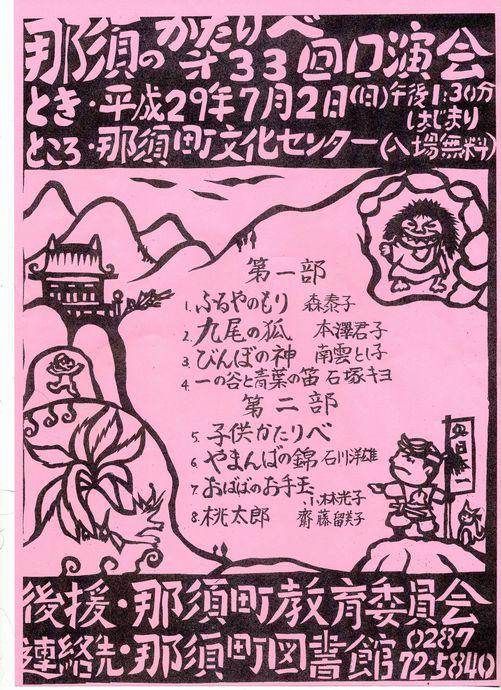 那須のかたりべ
第33回口演会
とき・平成29年7月2日(日)午後1:30分
はじまり
ところ・那須町文化センター(入場無料)
第一部
1. ふるやのもり 森泰子
2. 九尾の狐 本澤君子
3. びんぼの神 南雲とし子
4. 一の谷と青葉の笛 石塚キヨ
第二部
5. 子供かたりべ
6. やまんばの錦 石川洋雄
7. おばばのお手玉 小林光子
8. 桃太郎 齋藤留美子
日本一
後援・那須町教育委員会
連絡先・那須町図書館 0287
72-5840